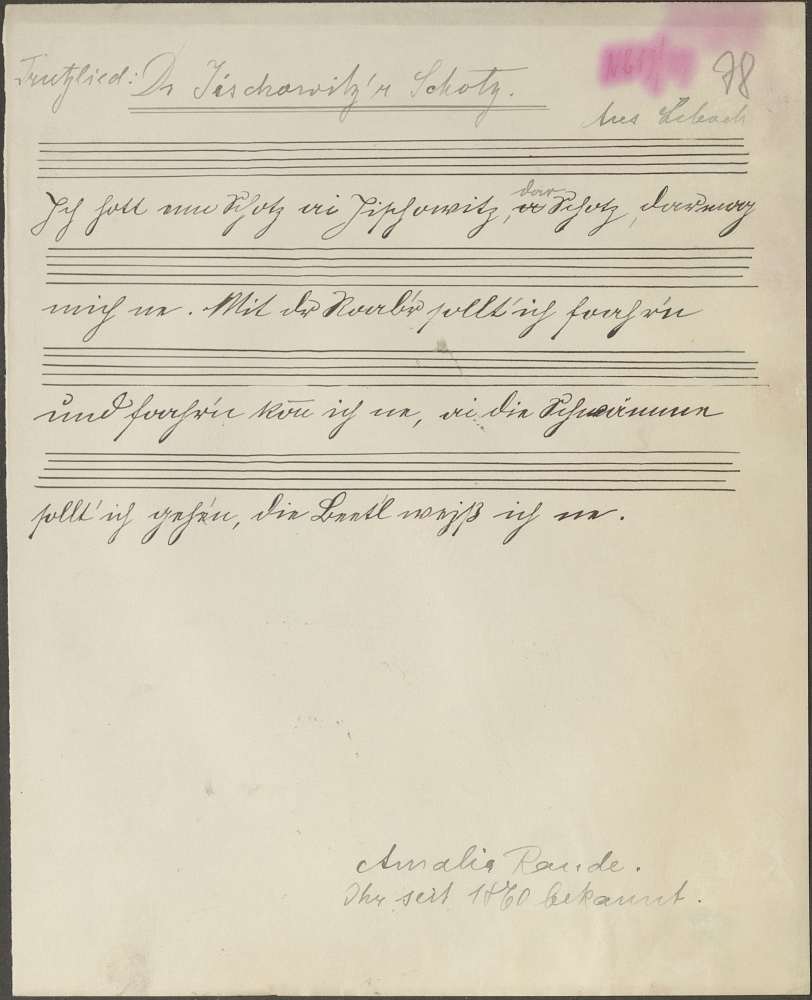 Trutzlied: Dr Jischowitz'r Schotz. 78
Aus
Ich hott enn Schotz ai Jischowitz, dar Schotz, dar mag
mich ne. Mit dr Roab'r sollt' ich foahr'n
und foahr'n kon̄ ich ne, ai die Schwämme
sollt' ich geh'n, die Beetl weiß ich ne.
Amalie Rande.
Ihr seit 1860 bekannt.